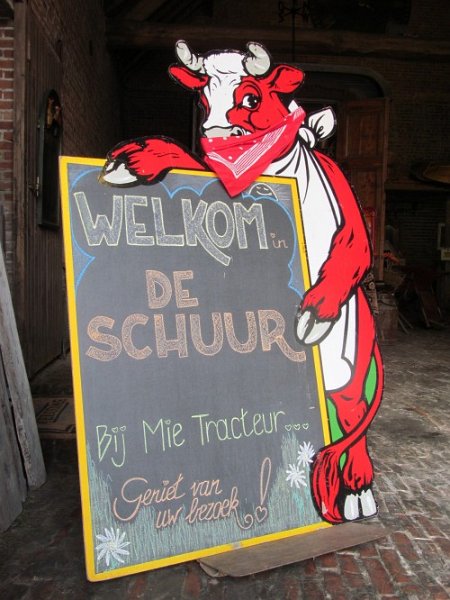 WELKOM in
DE
SCHUUR
Bij Mie Tracteur...
Geniet van
uw bezoek!